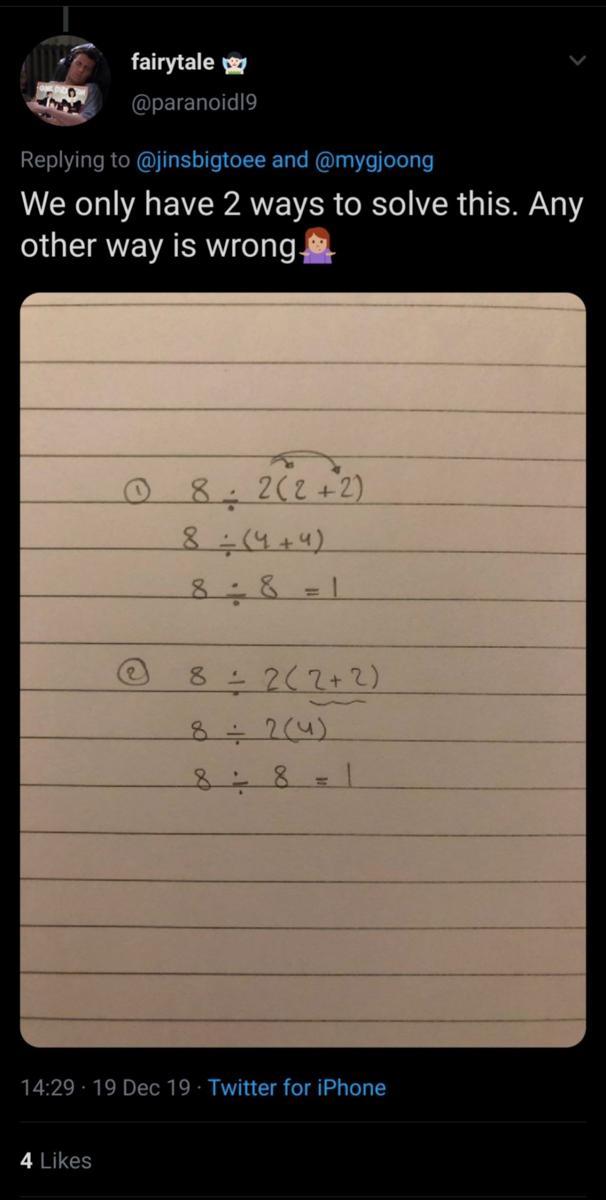 fairytale 🧚🏻
@paranoidl9
Replying to @jinsbigtoee and @mygjoong
We only have 2 ways to solve this. Any
other way is wrong🤷🏽‍♀️
① 8 ÷ 2(2+2)
8 ÷(4+4)
8 ÷ 8 = 1
② 8 ÷ 2(2+2)
8 ÷ 2(4)
8 ÷ 8 = 1
14:29 · 19 Dec 19 · Twitter for iPhone
4 Likes